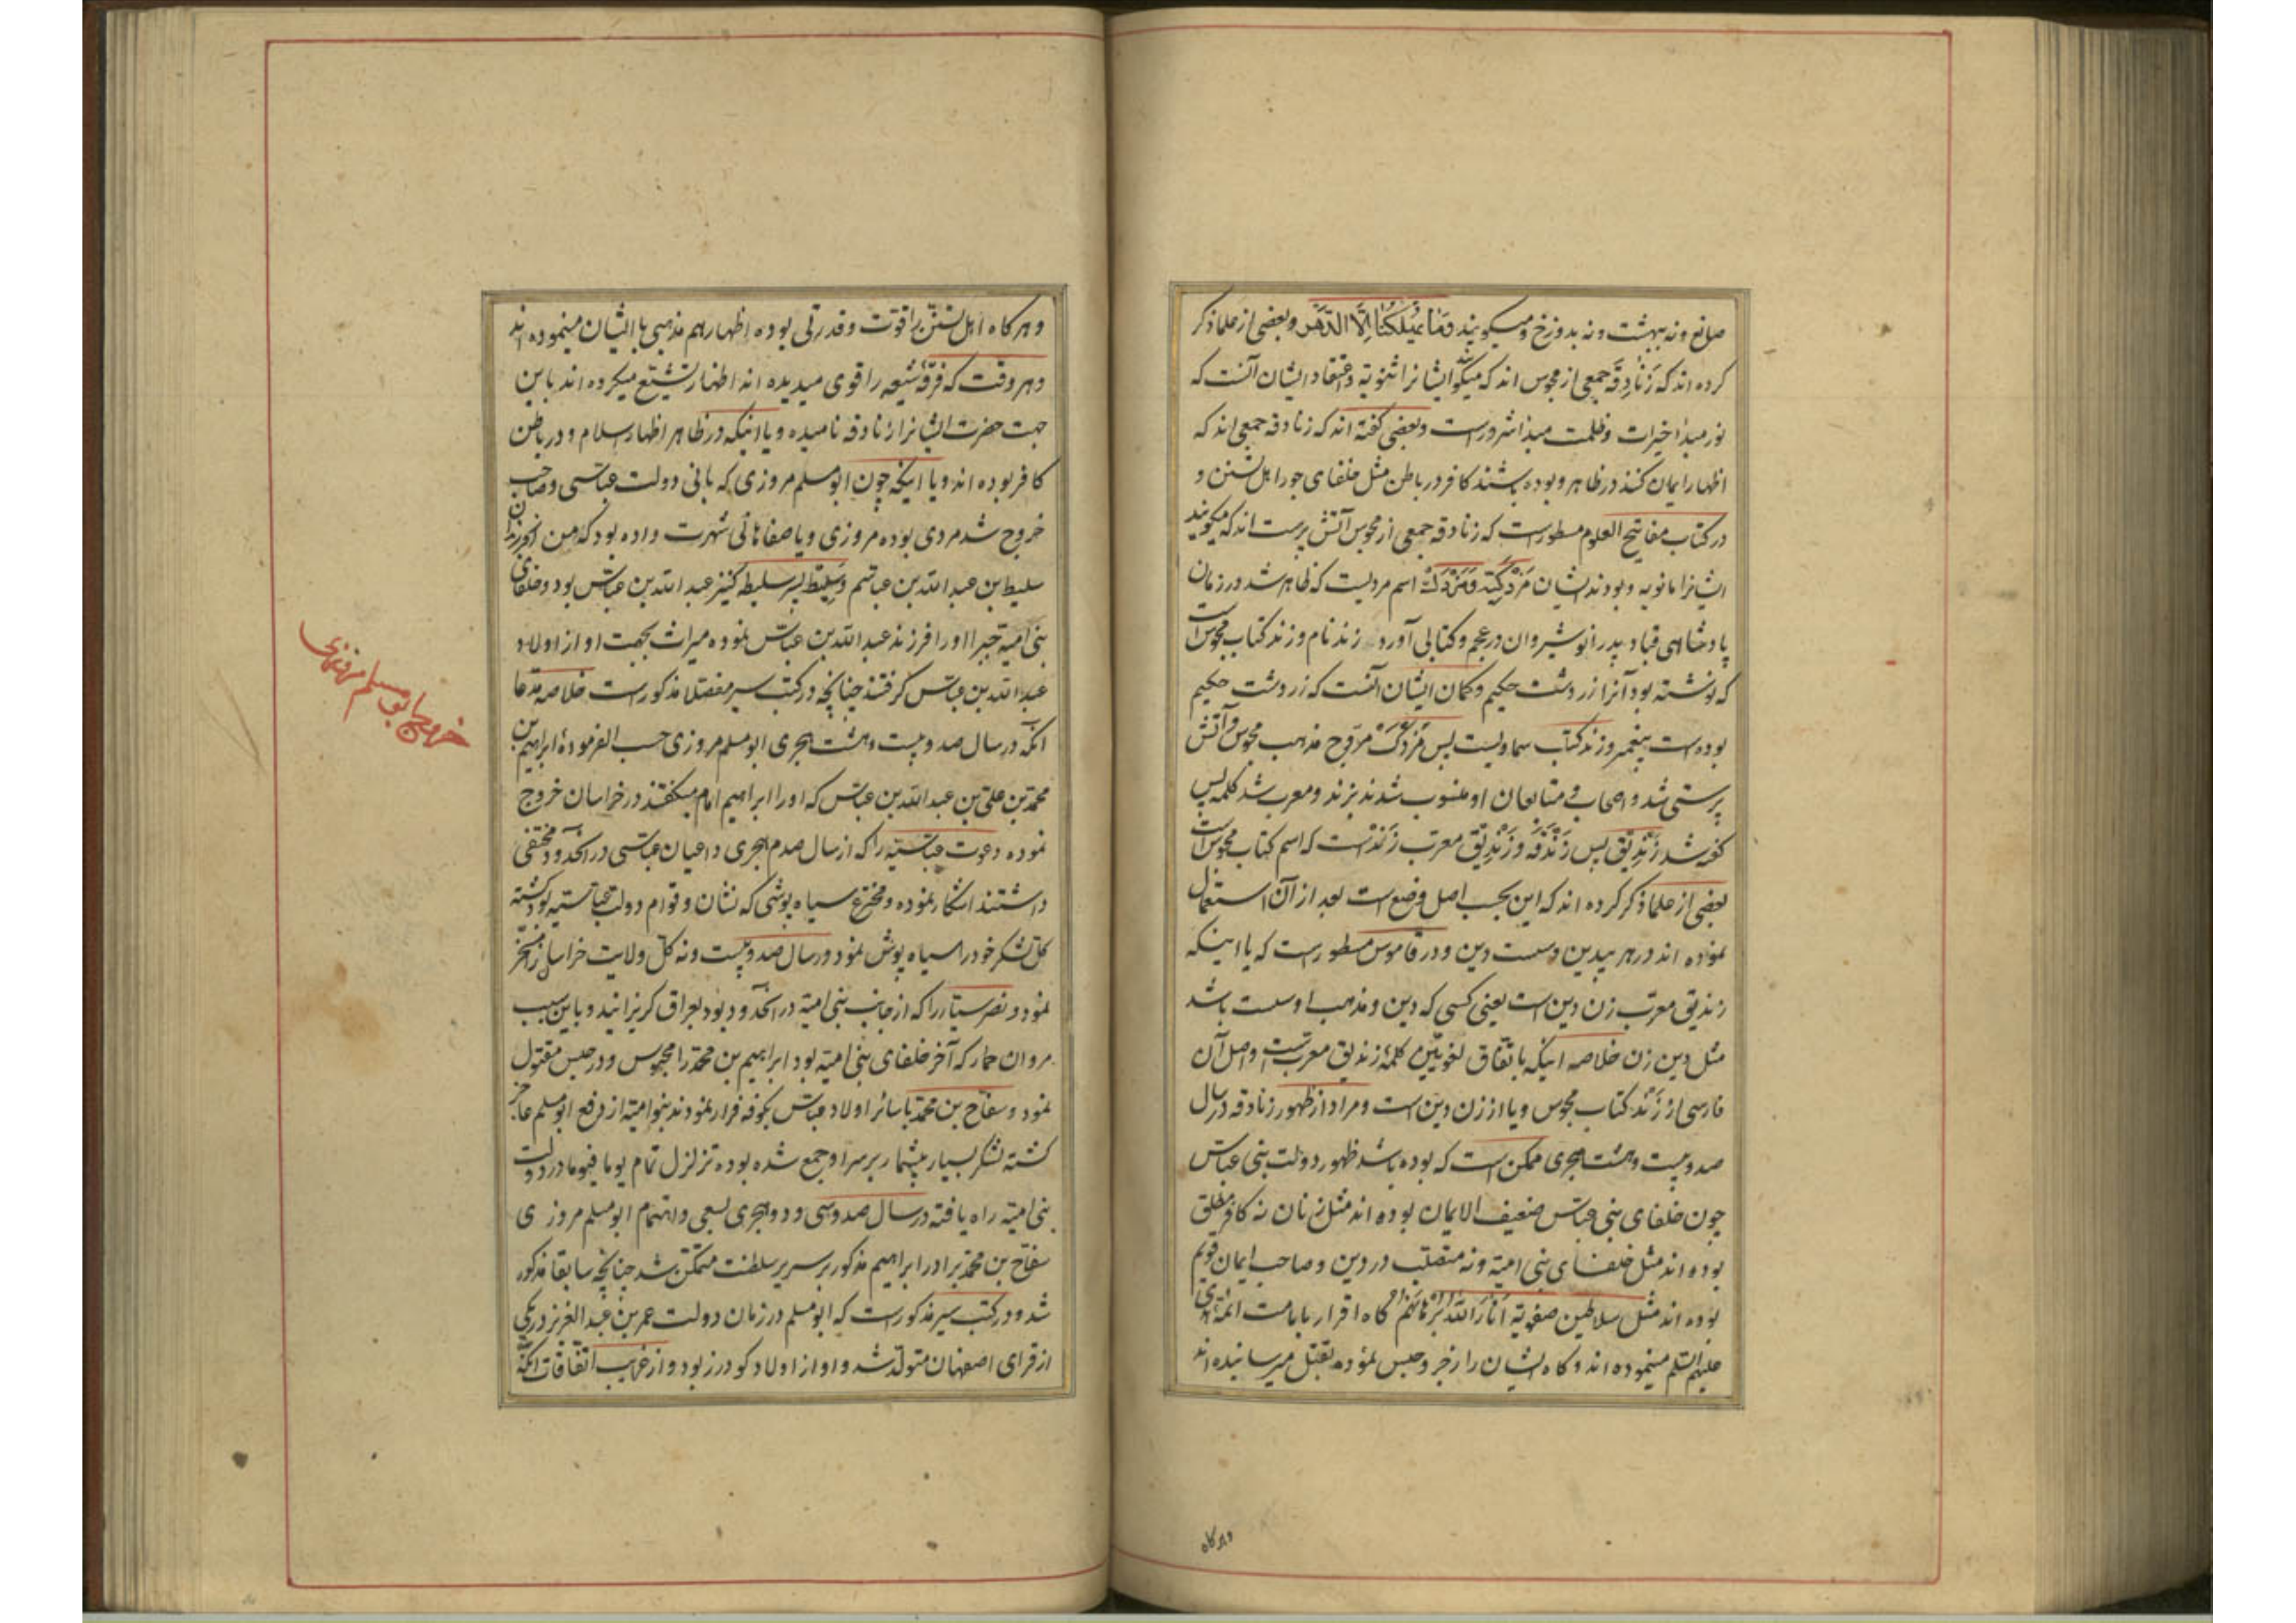 صانع و نه ببهشت و نه بدوزخ و میکویند وَمَا یُهْلِکُنَا اِلَّا الدَّهْر و بعضی از علما ذکر
کرده اند که زَنَادِقَه جمعی از مجوس اند که میکویند ایشانرا ثنویّه و اعتقاد ایشان آنست که
نور مبدأ خیرات و ظلمت مبدأ شرور است و بعضی کفته اند که زنادقه جمعی اند که
اظهار ایمان کنند در ظاهر و بوده باشند کافر در باطن مثل خلفای جور اهل تسنن و
در کتاب مفاتیح العلوم مسطور است که زنادقه جمعی از مجوس آتش پرست اند که میکویند
ایشانرا مانویه و بودند ایشان مَزْدَکِیَّه وَمَزْدَکْ اسم مردیست که ظاهر شد در زمان
پادشاهی قباد پدر انوشیروان در عجم و کتابی آورد زند نام و زند کتاب مجوس است
که نوشته بود آنرا زردشت حکیم و کمان ایشان آنست که زردشت حکیم
بوده است پیغمبر و زند کتاب سماویست پس مَزْدَکْ مروّج مذهب مجوس و آتش
پرستی شد و اصحاب و متابعان او منسوب شدند بزند و معرب شد کلمه پس
کفته شد زِنْدِیق پس زَنْدَقَه و زِنْدِیق معرب زَنْد است که اسم کتاب مجوس است
بعضی از علما ذکر کرده اند که این بحسب اصل وضع است بعد از آن استعمال
نموده اند در هر بیدین و سست دین و در قاموس مسطور است که یا اینکه
زندیق معرّب زن دین است یعنی کسی که دین و مذهب او سست باشد
مثل دین زن خلاصه اینکه باتّفاق لغویّین کلمۀ زندیق معربست و اصل آن
فارسی از زَنْد کتاب مجوس و یا از زن دین است و مراد از ظهور زنادقه در سال
صد و بیست و هشت هجری ممکن است که بوده باشد ظهور دولت بنی عباس
چون خلفای بنی عبّاس ضعیف الایمان بوده اند مثل زنان نه کافر مطلق
بوده اند مثل خلفای بنی امیّه و نه متصلب در دین و صاحب ایمان قویم
بوده اند مثل سلاطین صفویّه اَنَارَ اللّٰه بُرْهَانَهُم کاه اقرار بامامت ائمّۀ هدی
علیهم السّلم مینموده اند و کاه ایشان را زجر و حبس نموده بقتل میرسانیده اند
و هر کاه
و هر کاه اهل تسنّن را قوّت و قدرتی بوده اظهار هم مذهبی با ایشان مینموده اند
و هر وقت که فرقۀ شیعه را قوی میدیده اند اظهار تشیّع میکرده اند باین
جهت حضرت ایشانرا زنادقه نامیده و یا اینکه در ظاهر اظهار اسلام و در باطن
کافر بوده اند و یا اینکه چون ابومسلم مروزی که بانی دولت عبّاسی و صاحب
خروج شد مردی بوده مروزی و یا صفاهانی شهرت داده بود که من از فرزندان
سلیط بن عبد اللّه بن عباسم و سَلِیط پسر سلیطه کنیز عبد اللّه بن عبّاس بود و خلفای
بنی امیّه جبرا او را فرزند عبد اللّه بن عبّاس نموده میراث بجهت او از اولاد
عبد اللّه بن عبّاس کرفتند چنانچه در کتب سیر مفصلا مذکور است خلاصه مدّعا
آنکه در سال صد و بیست و هشت هجری ابومسلم مروزی حسب الفرمودۀ ابراهیم بن
محمّد بن علی بن عبد اللّه بن عبّاس که او را ابراهیم امام میکفتند در خراسان خروج
نموده دعوت عبّاسیّه را که از سال صدم هجری داعیان عبّاسی در آنحدود مختفی
داشتند آشکار نموده و مخترع سیاه پوشی که نشان و قوام دولت عبّاسیّه بود کشته
کلّ لشکر خود را سیاه پوش نمود و در سال صد و بیست و نه کلّ ولایت خراسان را مسخّر
نمود و نصر سیّار را که از جانب بنی امیّه در آنحدود بود بعراق کریزانید و باین سبب
مروان حمار که آخر خلفای بنی امیّه بود ابراهیم بن محمّد را محبوس و در حبس مقتول
نمود و سفّاح بن محمّد با سائر اولاد عبّاس بکوفه فرار نمودند بنوامیّه از دفع ابومسلم عاجز
کشته لشکر بسیار بیشمار بر سر او جمع شده بوده تزلزل تمام یوما فیوما در دولت
بنی امیّه راه یافته در سال صد و سی و دو هجری بسعی و اهتمام ابومسلم مروزی
سفّاح بن محمّد برادر ابراهیم مذکور بر سریر سلطنت متمکّن شد چنانچه سابقا مذکور
شد و در کتب سیر مذکور است که ابومسلم در زمان دولت عمر بن عبد العزیز در یکی
از قرای اصفهان متولّد شد و او از اولاد کودرز بود و از غرایب اتّفاقات آنکه
خروج ابومسلم مروزی